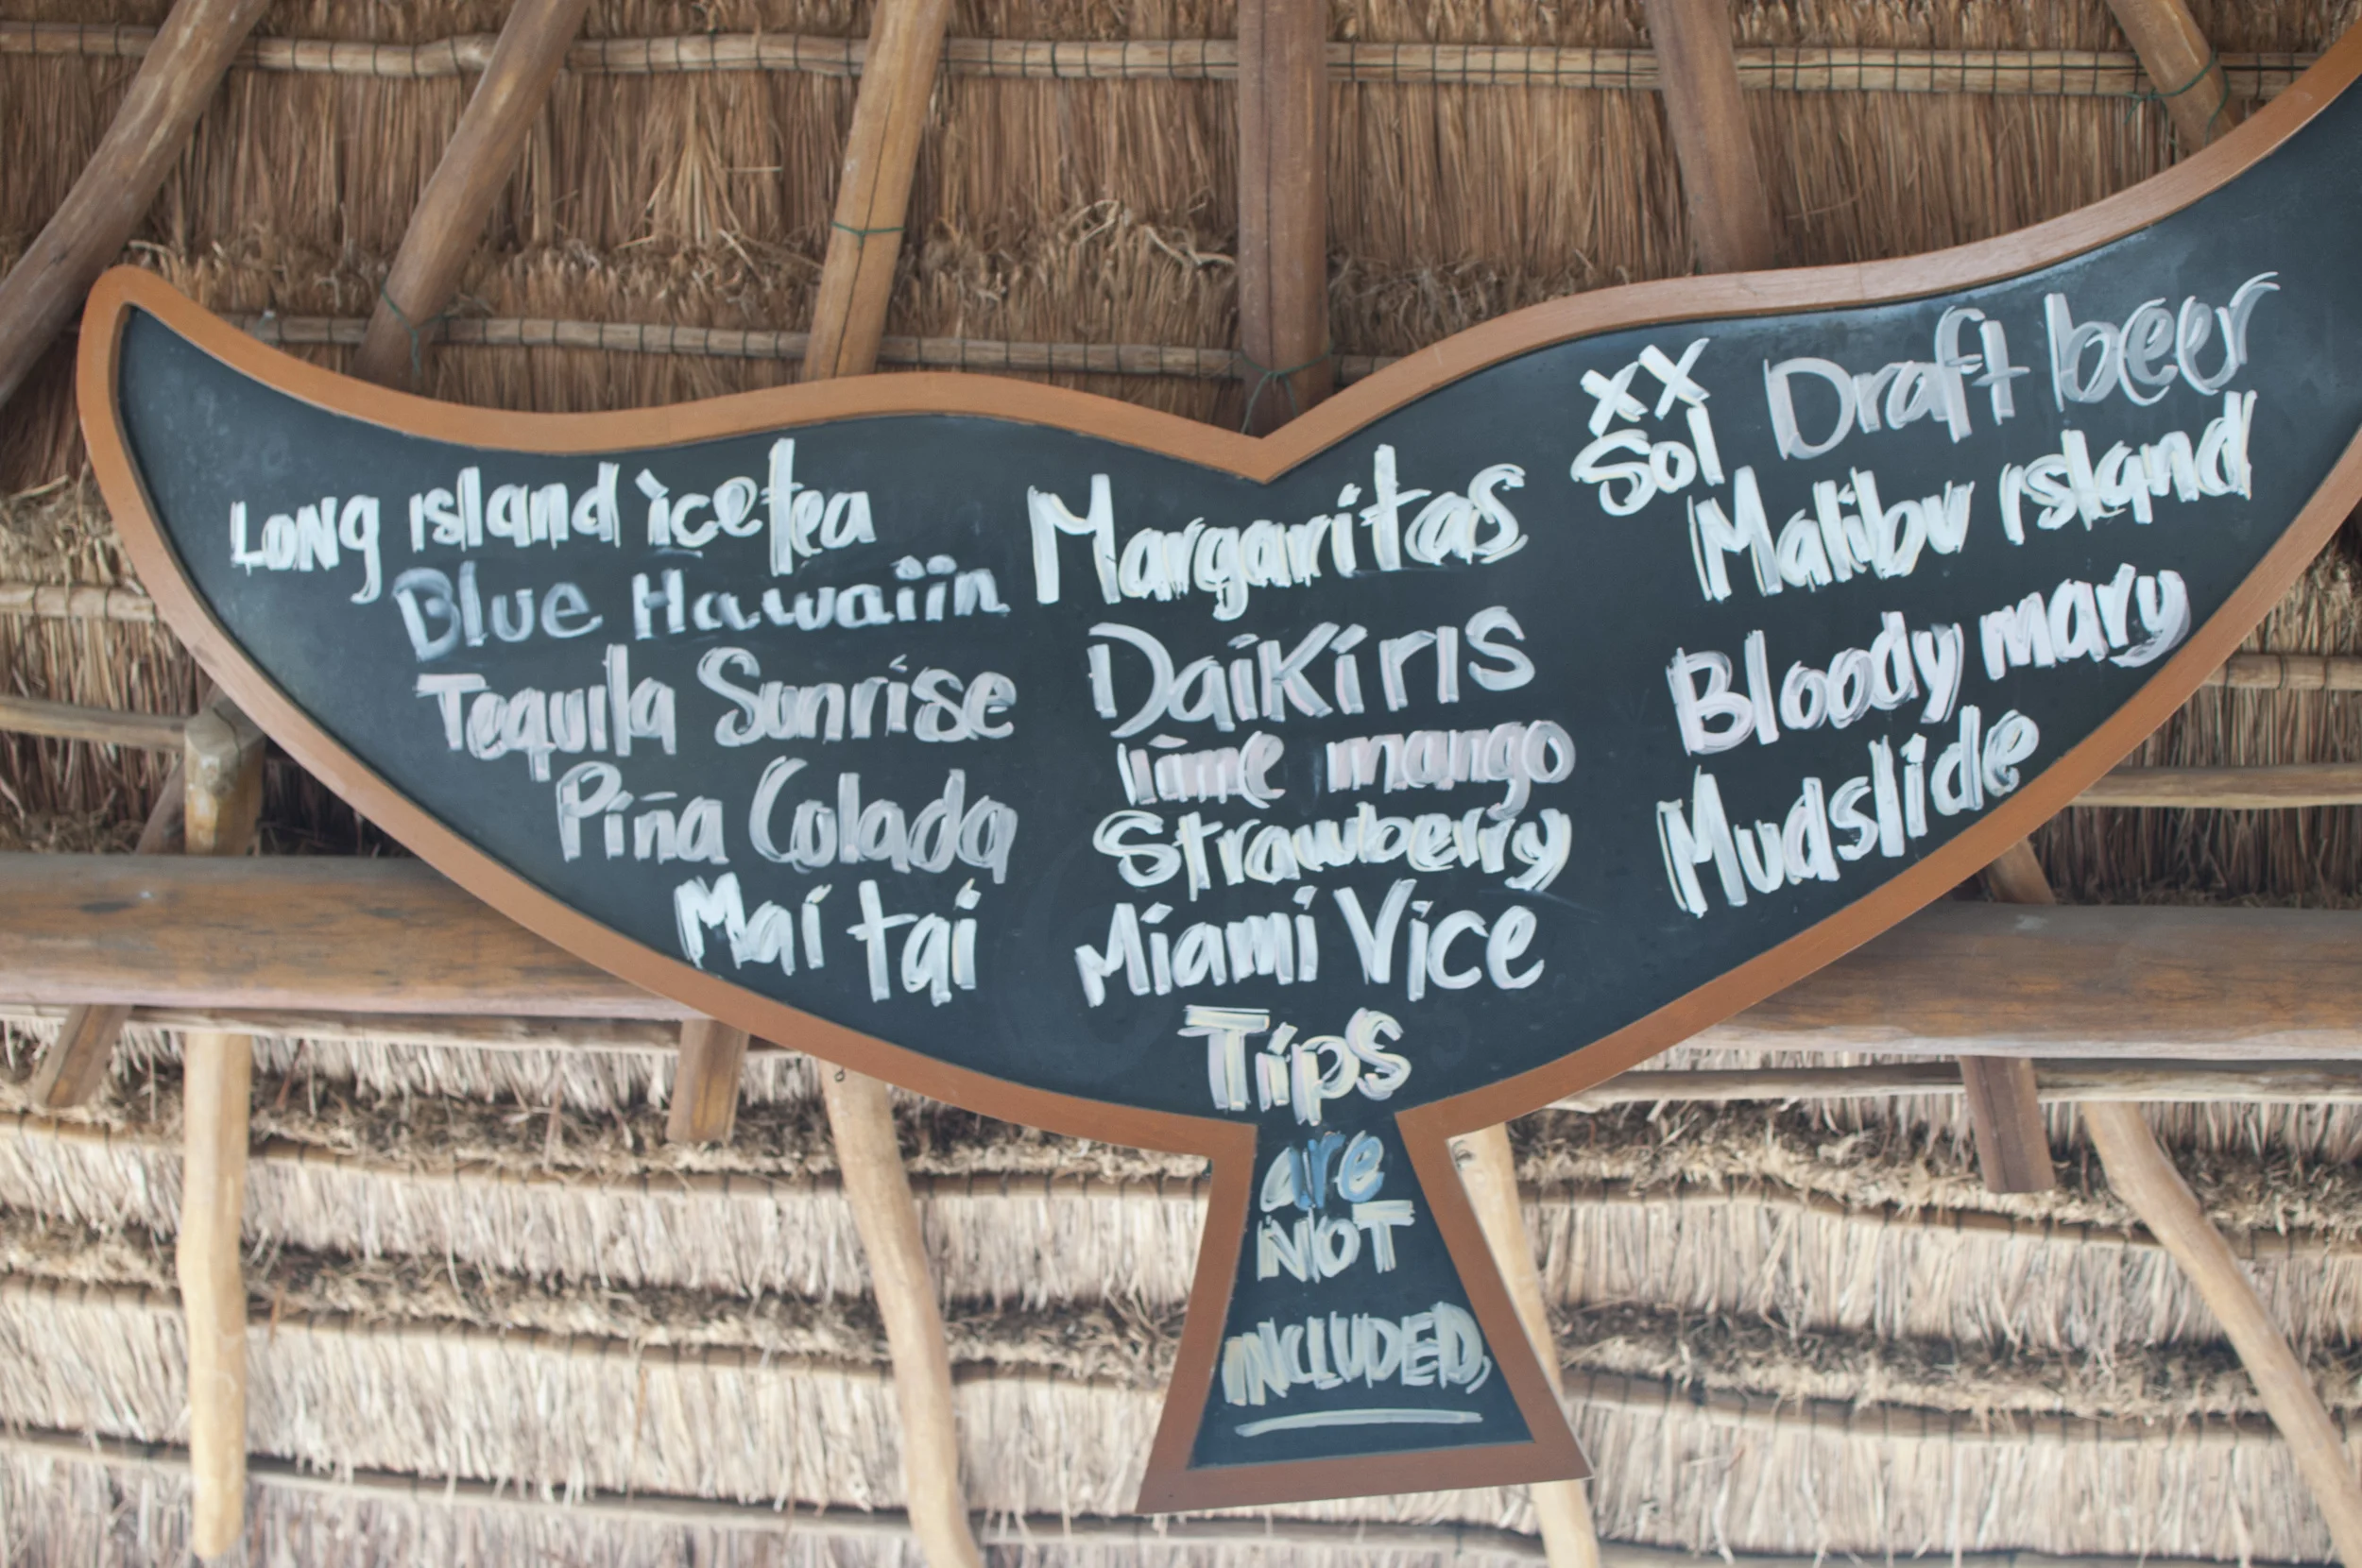 Long island icetea
Blue Hawaiin
Tequila Sunrise
Piña Colada
Mai tai
Margaritas
DaiKiris
lime mango
Strawberry
Miami Vice
XX
Sol
Draft beer
Malibu island
Bloody mary
Mudslide
Tips
are
NOT
INCLUDED,